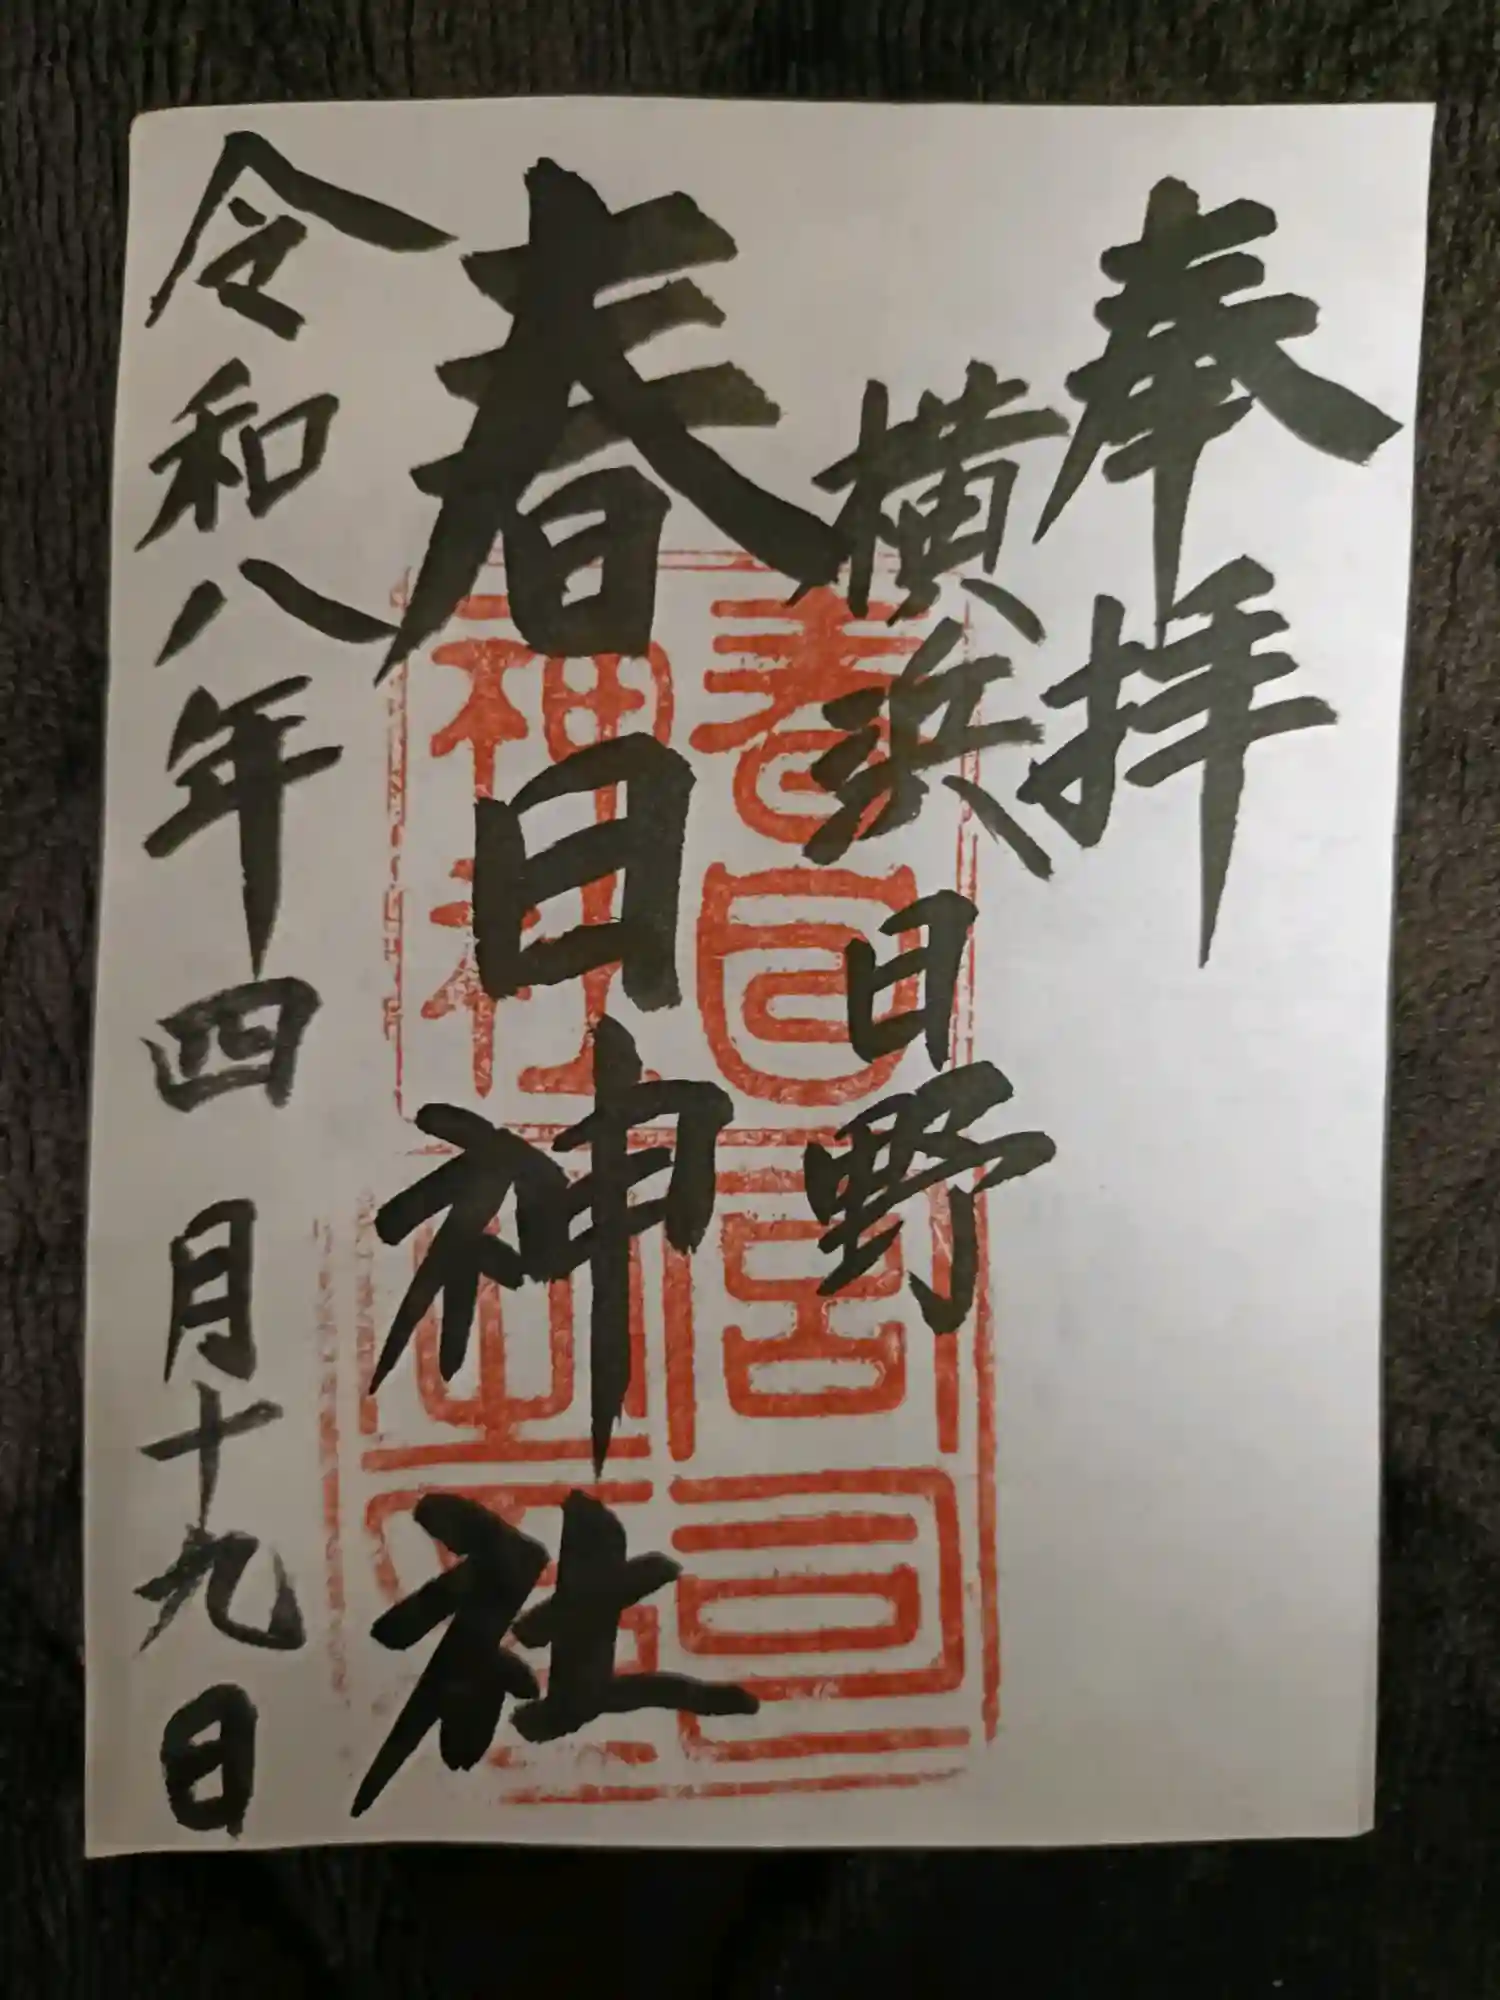 奉拝
横浜日野
春日神社
令和八年四月十九日
春日
神社
宮司